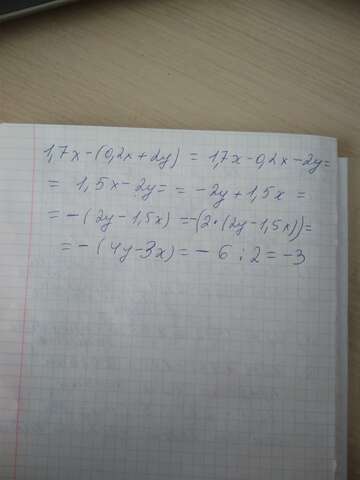 1,7x-(0,2x+2y) = 1,7x-0,2x-2y=
= 1,5x-2y= = -2y+1,5x =
= -(2y-1,5x) =-(2·(2y-1,5x))=
= -(4y-3x)= -6 : 2 = -3